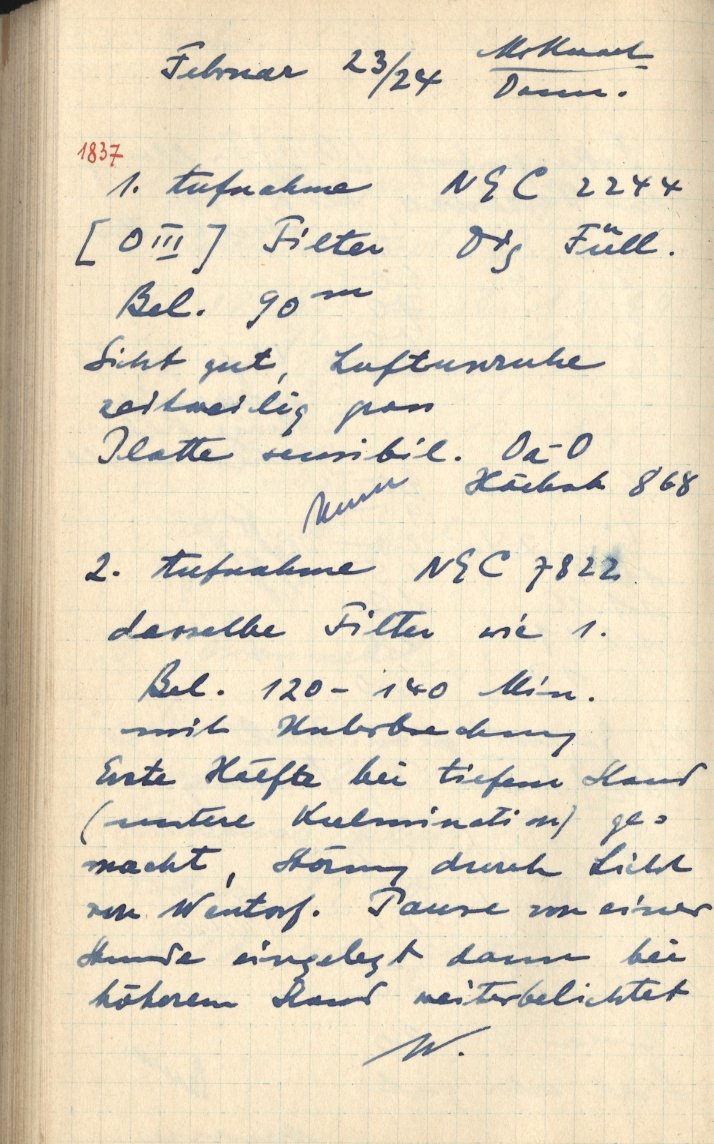 Februar 23/24 Mittwoch
Donn.
1837
1. Aufnahme NGC 2244
[OIII] Filter Orig Füll.
Bel. 90 m
Sicht gut, Luftunruhe
zeitweilig gross
Platte sensibil. Oa-O
Höchst 868
2. Aufnahme NGC 7822
dasselbe Filter wie 1.
Bel. 120 - 140 Min.
mit Unterbrechung
Erste Hälfte bei tiefem Stand
(untere Kulmination) ge=
macht, Störung durch Licht
von Wentorf. Pause von einer
Stunde eingelegt dann bei
höherem Stand weiterbelichtet
W.